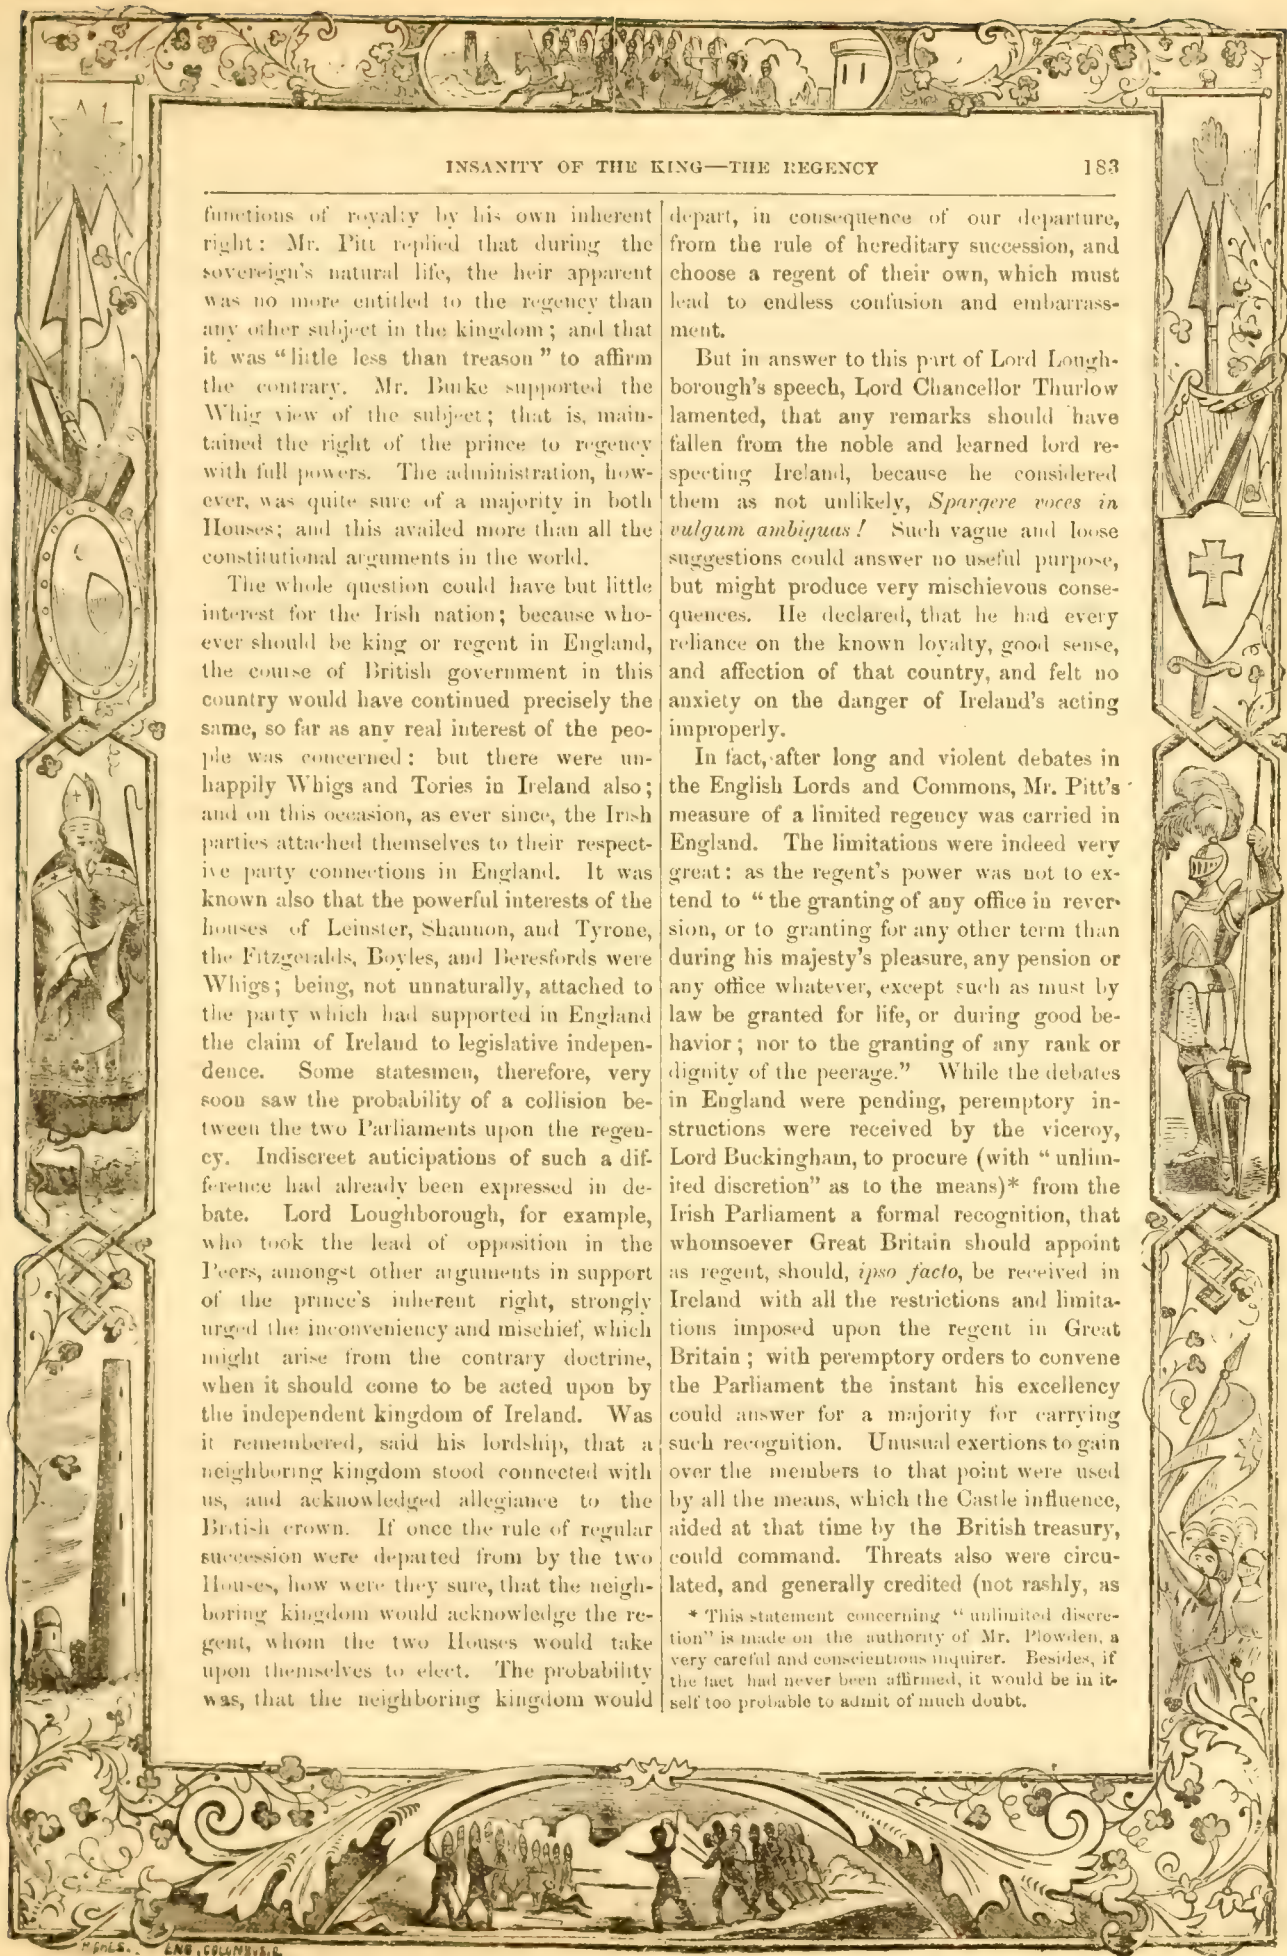 INSANITY OF THE KING—THE REGENCY 183
functions of royalty by his own inherent
right: Mr. Pitt replied that during the
sovereign's natural life, the heir apparent
was no more entitled to the regency than
any other subject in the kingdom; and that
it was "little less than treason" to affirm
the contrary. Mr. Burke supported the
Whig view of the subject; that is, main-
tained the right of the prince to regency
with full powers. The administration, how-
ever, was quite sure of a majority in both
Houses; and this availed more than all the
constitutional arguments in the world.
The whole question could have but little
interest for the Irish nation; because who-
ever should be king or regent in England,
the course of British government in this
country would have continued precisely the
same, so far as any real interest of the peo-
ple was concerned: but there were un-
happily Whigs and Tories in Ireland also;
and on this occasion, as ever since, the Irish
parties attached themselves to their respect-
ive party connections in England. It was
known also that the powerful interests of the
houses of Leinster, Shannon, and Tyrone,
the Fitzgeralds, Boyles, and Beresfords were
Whigs; being, not unnaturally, attached to
the party which had supported in England
the claim of Ireland to legislative indepen-
dence. Some statesmen, therefore, very
soon saw the probability of a collision be-
tween the two Parliaments upon the regen-
cy. Indiscreet anticipations of such a dif-
ference had already been expressed in de-
bate. Lord Loughborough, for example,
who took the lead of opposition in the
Peers, amongst other arguments in support
of the prince's inherent right, strongly
urged the inconveniency and mischief, which
might arise from the contrary doctrine,
when it should come to be acted upon by
the independent kingdom of Ireland. Was
it remembered, said his lordship, that a
neighboring kingdom stood connected with
us, and acknowledged allegiance to the
British crown. If once the rule of regular
succession were departed from by the two
Houses, how were they sure, that the neigh-
boring kingdom would acknowledge the re-
gent, whom the two Houses would take
upon themselves to elect. The probability
was, that the neighboring kingdom would
depart, in consequence of our departure,
from the rule of hereditary succession, and
choose a regent of their own, which must
lead to endless confusion and embarrass-
ment.
But in answer to this part of Lord Lough-
borough's speech, Lord Chancellor Thurlow
lamented, that any remarks should have
fallen from the noble and learned lord re-
specting Ireland, because he considered
them as not unlikely, Spargere voces in
vulgum ambiguas! Such vague and loose
suggestions could answer no useful purpose,
but might produce very mischievous conse-
quences. He declared, that he had every
reliance on the known loyalty, good sense,
and affection of that country, and felt no
anxiety on the danger of Ireland's acting
improperly.
In fact, after long and violent debates in
the English Lords and Commons, Mr. Pitt's
measure of a limited regency was carried in
England. The limitations were indeed very
great: as the regent's power was not to ex-
tend to "the granting of any office in rever-
sion, or to granting for any other term than
during his majesty's pleasure, any pension or
any office whatever, except such as must by
law be granted for life, or during good be-
havior; nor to the granting of any rank or
dignity of the peerage." While the debates
in England were pending, peremptory in-
structions were received by the viceroy,
Lord Buckingham, to procure (with "unlim-
ited discretion" as to the means)* from the
Irish Parliament a formal recognition, that
whomsoever Great Britain should appoint
as regent, should, ipso facto, be received in
Ireland with all the restrictions and limita-
tions imposed upon the regent in Great
Britain; with peremptory orders to convene
the Parliament the instant his excellency
could answer for a majority for carrying
such recognition. Unusual exertions to gain
over the members to that point were used
by all the means, which the Castle influence,
aided at that time by the British treasury,
could command. Threats also were circu-
lated, and generally credited (not rashly, as
* This statement concerning "unlimited discre-
tion" is made on the authority of Mr. Plowden, a
very careful and conscientious inquirer. Besides, if
the fact had never been affirmed, it would be in it-
self too probable to admit of much doubt.
ENG. COLUMBUS. O.